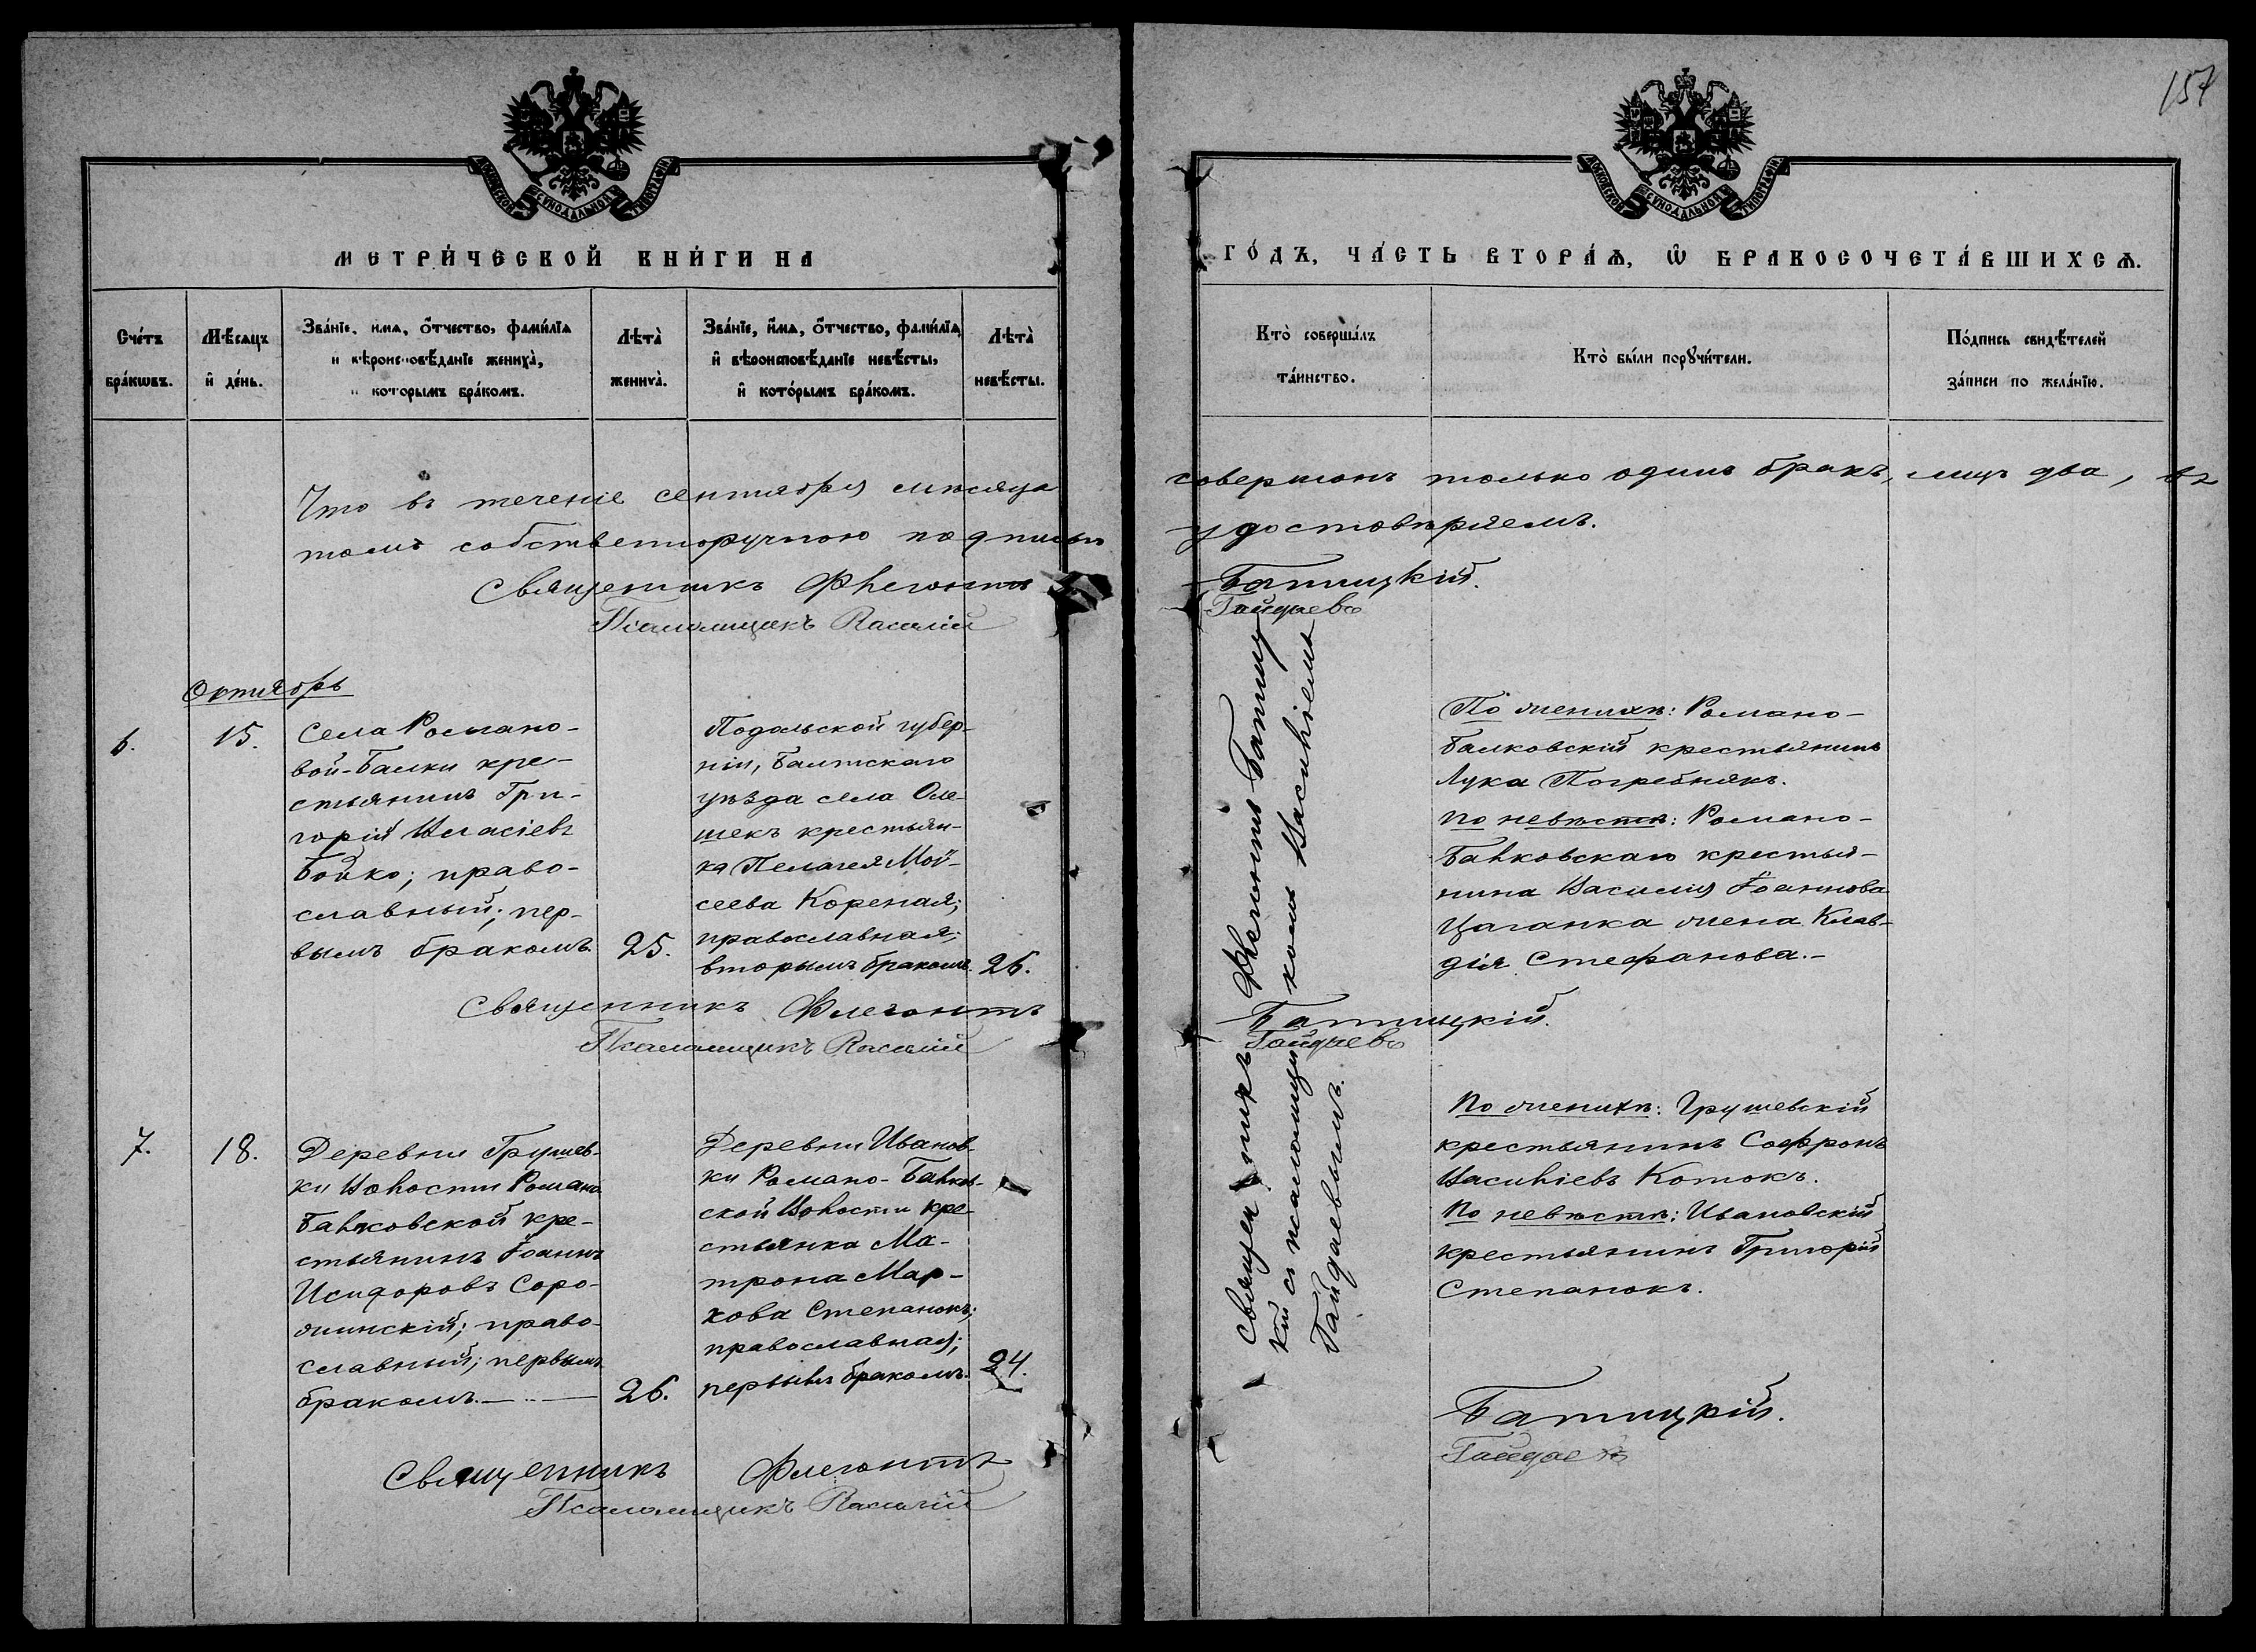 157
МОСКОВСКОЙ СѴНОДАЛЬНОЙ ТИПОГРАФІИ
МОСКОВСКОЙ СѴНОДАЛЬНОЙ ТИПОГРАФІИ
МЕТРИ́ЧЕСКОЙ КНИ́ГИ НА
ГО́ДЪ, ЧА́СТЬ ВТОРА́Ѧ, Ѡ҆ БРАКОСОЧЕТА́ВШИХСѦ.
Сче́тъ
бра́кѡвъ.
Мѣ́сяцъ
и҆ де́нь.
Зва́нїе, имѧ, ѻ҆́тчество, фами́лїѧ
и вѣроисповѣ́данїе жениха̀,
и которымъ бра́комъ.
Лѣта̀
жениха̀.
Зва́нїе, и҆́мѧ, ѻ҆́тчество, фами́лїѧ
и҆ вѣроисповѣ́данїе невѣ́сты,
и҆ кото́рымъ бра́комъ.
Лѣта̀
невѣ́сты.
Кто̀ соверша́лъ
та́инство.
Кто̀ бы́ли порꙋчи́тели.
По́дпись свидѣ́телей
за́писи по жела́нїю.
Что въ теченіе сентября мѣсяца совершонъ только одинъ бракъ, лицъ два, въ
томъ собственноручною подписью удостовѣряемъ.
Священникъ Флегонтъ Батицкій.
Псаломщикъ Василій Гайдаевъ
Октябрь
6.
15.
Села Романо-
вой-Балки кре-
стьянинъ Гри-
горій Власіевъ
Бойко; право-
славный; пер-
вымъ бракомъ.
25.
Подольской губер-
ніи, Балтскаго
уѣзда села Оле-
шекъ крестьян-
ка Пелагея Мой-
сеева Кореная;
православная;
вторымъ бракомъ.
26.
Священникъ Флегонтъ Батиц
кій съ псаломщи комъ Василіемъ
Гайдаевымъ.
По женихѣ: Романо-
Балковскій крестьянинъ
Лука Погребнякъ.
По невѣстѣ: Романо-
Балковскаго крестья-
нина Василія Іоаннова
Цаганка жена Клав-
дія Стефанова.-
Священникъ Флегонтъ Батицкій.
Псаломщикъ Василій Гайдаевъ
7.
18.
Деревни Грушев-
ки Волости Романо
Балковской кре-
стьянинъ Іоаннъ
Исидоровъ Соро-
жинскій; право-
славный; первымъ
бракомъ.
26.
Деревни Иванов-
ки Романо-Балков-
ской Волости кре-
стьянка Ма-
трона Мар-
кова Степанокъ;
православная;
первымъ бракомъ.
24.
По женихѣ: Грушевскій
крестьянинъ Софронъ
Василіевъ Котокъ.
По невѣстѣ: Ивановскій
крестьянинъ Григорій
Степанокъ.
Священникъ Флегонтъ Батицкій.
Псаломщикъ Василій Гайдаевъ